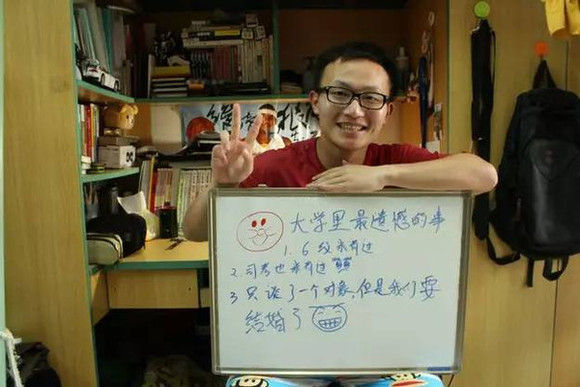 大学里最遗憾的事
1. 6级未有过
2 司考也未有过
3 只谈了一个对象,但是我们要
结婚了